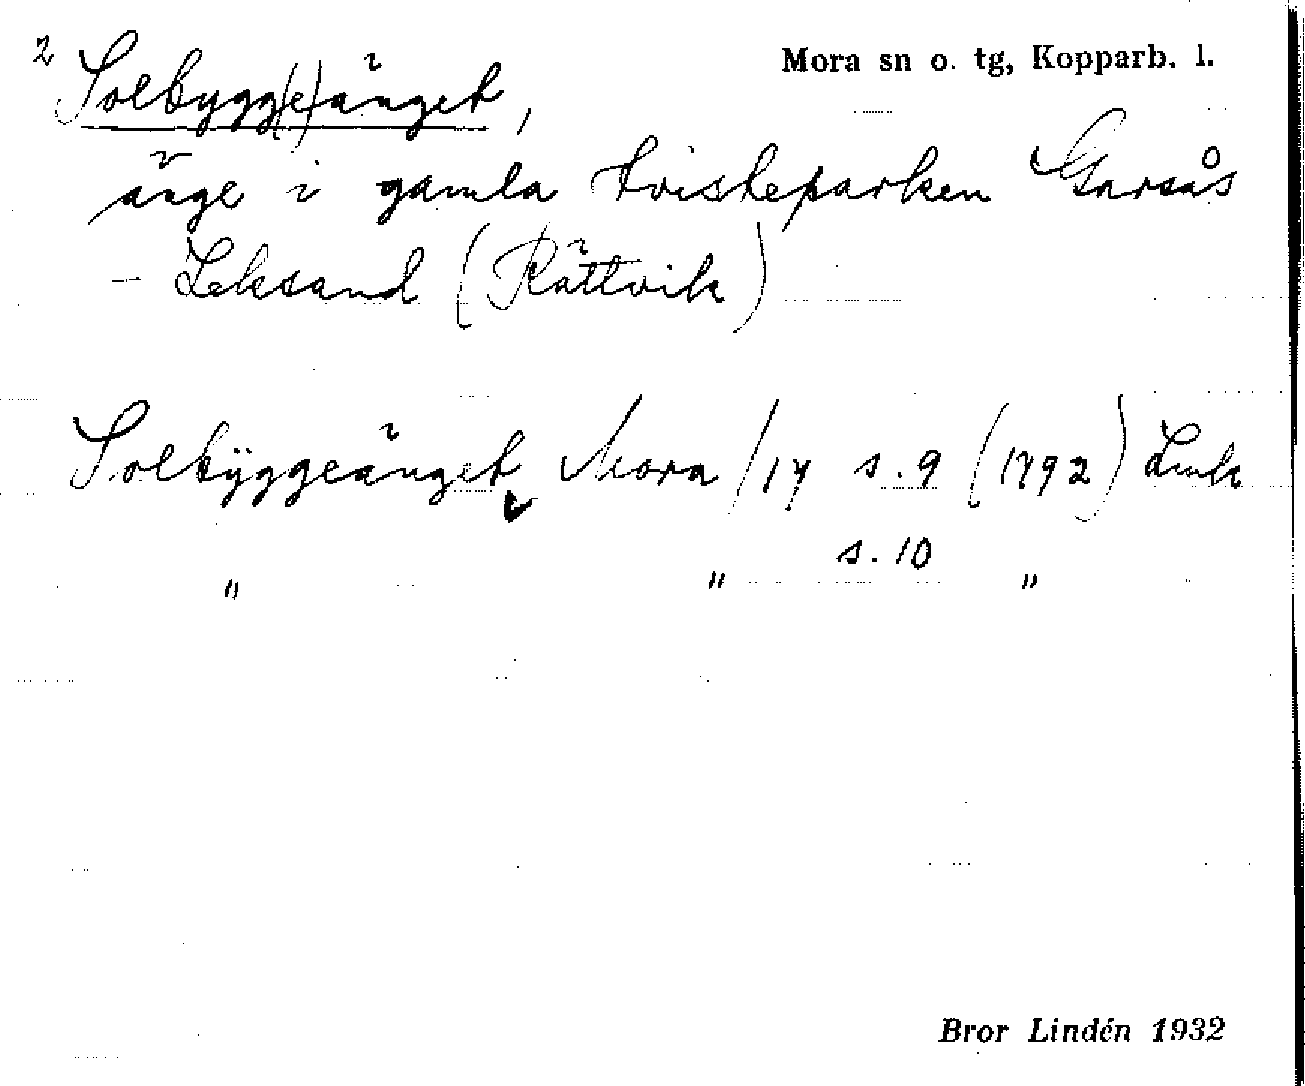 2 Solbygg(e)änget,
Mora sn o. tg, Kopparb. l.
änge i gamla tvisteparken Garsås
– Leksand (Rättvik)
Solbÿggeänget Mora /17 s. 9 (1792) Lmk
s. 10
" " "
Bror Lindén 1932